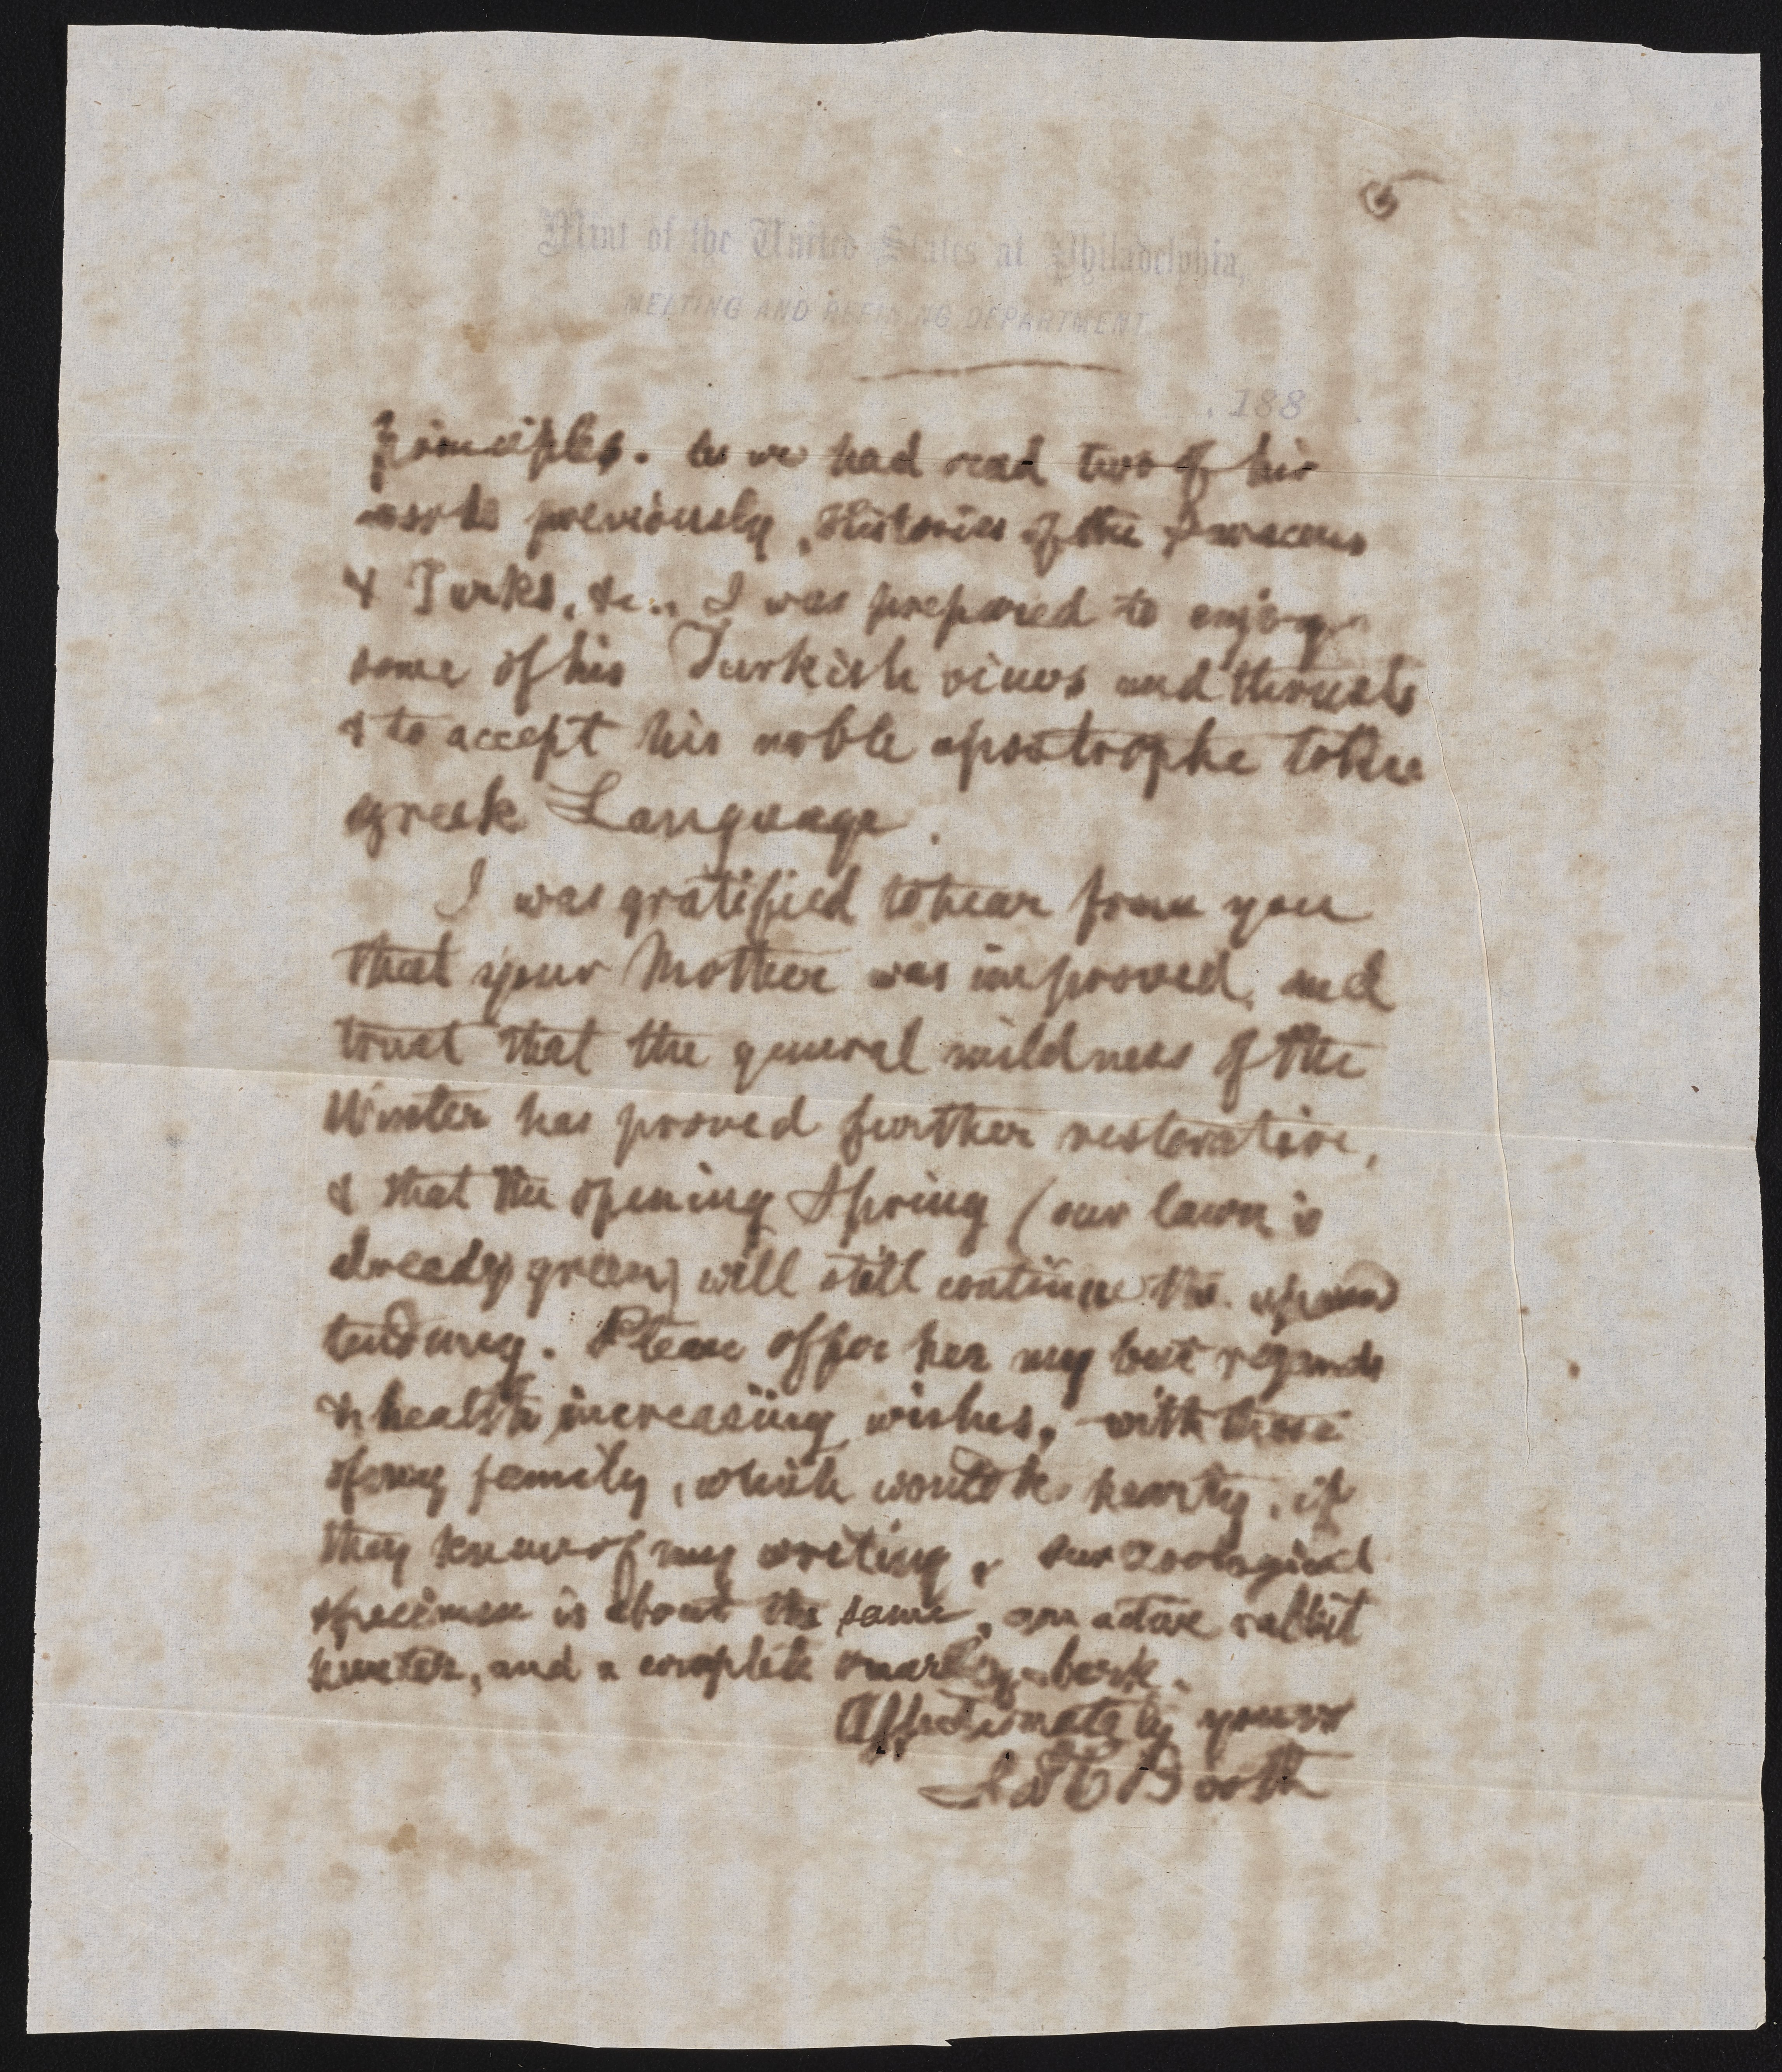 5
Mint of the United States at Philadelphia,
MELTING AND REFINING DEPARTMENT
, 188
principles. As we had read two of his
works previously, Histories of the Saracens
& Turks, &c., I was prepared to enjoy
some of his Turkish views and thrusts
& to accept his noble apostrophe to the
greek Language.
I was gratified to hear from you
that your Mother was improved, and
trust that the general mildness of the
Winter has proved further restorative,
& that the opening Spring (our lawn is
already green) will still continue the upward
tendency. Please offer her my best regards
& health increasing wishes, with those
of my family, which would be hearty, if
they knew of my writing. Our Zoological
specimen is about the same, an active rabbit
hunter, and a complete bark.
Affectionately yours
Jas C Booth